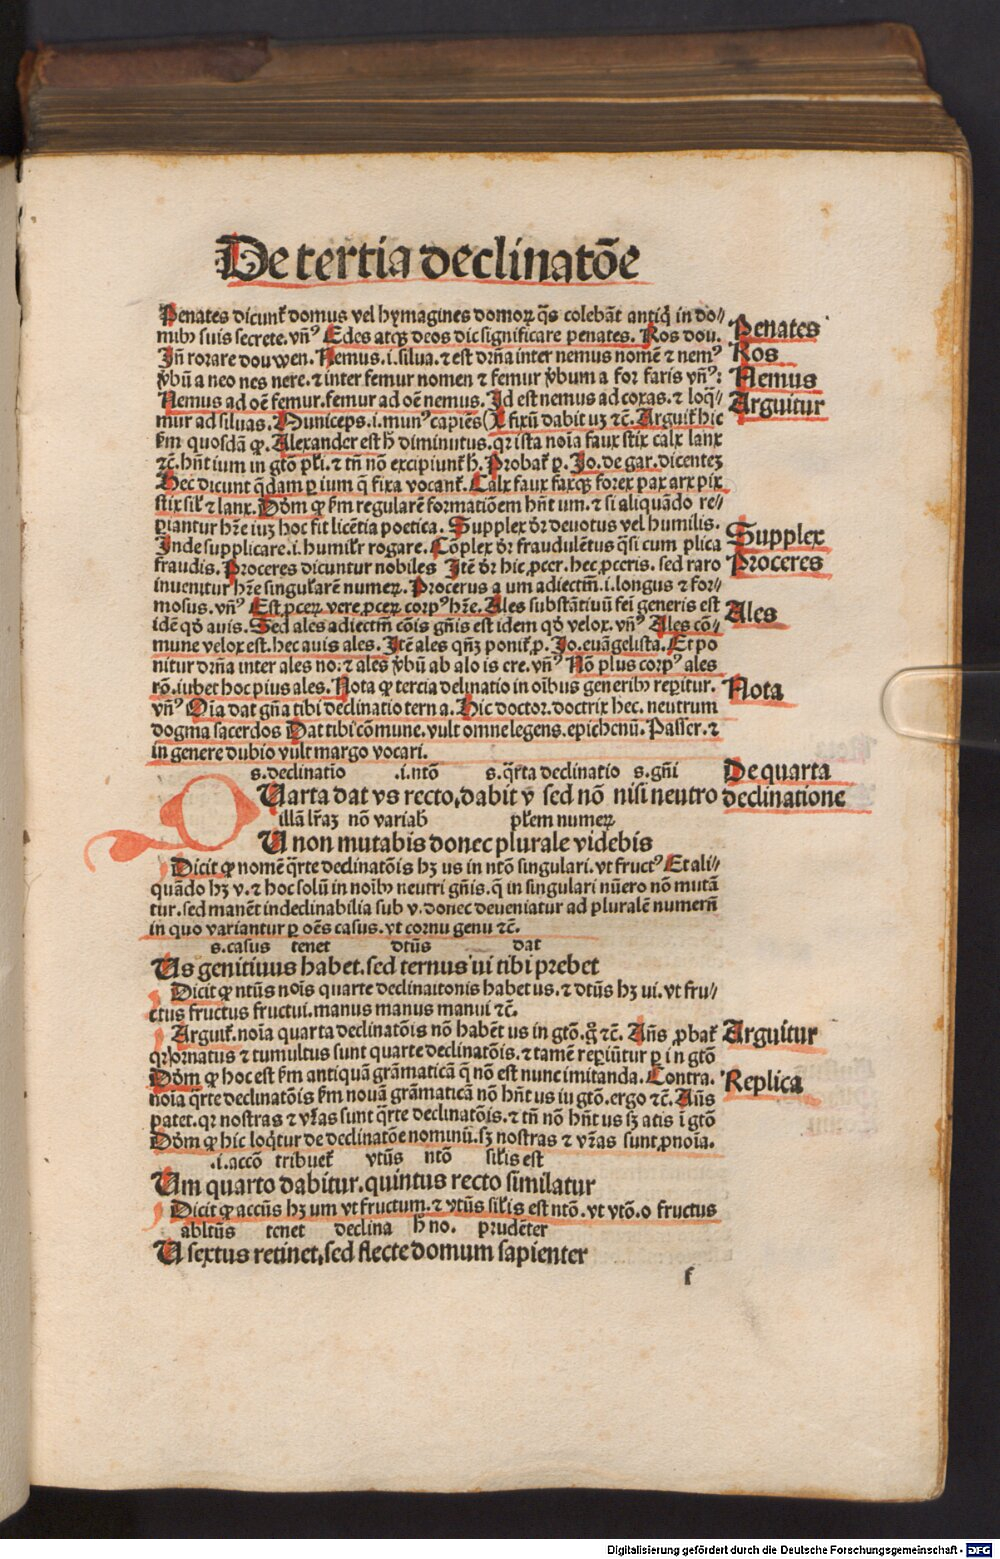 De tertia declinatōe
Penates dicunt᷑ domus vel hymagines domoꝝ q̄s colebāt antiq̇ in do//
mibꝯ suis secrete. vn̄ꝰ Edes atqꝫ deos dic significare penates. Ros dou.
Jn̄ rorare douwen. Nemus .i. silua. ⁊ est dr̄na inter nemus nomē ⁊ nemꝰ
v̄bū a neo nes nere. ⁊ inter femur nomen ⁊ femur v̄bum a for faris vn̄ꝰ:
Nemus ad oē femur. femur ad oē nemus. Jd est nemus ad coxas. ⁊ loq̄//
mur ad siluas. Municeps .i. munꝰ capiēs (X fixū dabit uꝫ ⁊c̄. Arguit᷑ hic
ẜm quosdā ꝙ. Alexander est h̄ diminutus. qꝛ ista noīa faux stix calx lanx
⁊c̄. hn̄t ium in gtō pl̄i. ⁊ tn̄ nō excipiunt᷑ h̄. Probat᷑ ꝑ. Jo. de gar. dicenteꝫ
Hec dicunt q̄dam ꝑ ium q̄ fixa vocant᷑. Calx faux faxqꝫ forex pax arx pix
stix sil᷑ ⁊ lanx. Dōm ꝙ ẜm regularē formatiōem hn̄t um. ⁊ si aliquādo re//
ꝑiantur hr̄e iuꝫ hoc fit licētia poetica. Supplex dr̄ deuotus vel humilis.
Jnde supplicare .i. humilr̄ rogare. Cōplex dr̄ fraudulētus q̄si cum plica
fraudis. Proceres dicuntur nobiles Jtē dr̄ hic ꝓcer. hec ꝓceris. sed raro
inuenitur hr̄e singularē numeꝝ. Procerus a um adiectm̄ .i. longus ⁊ for//
mosus. vn̄ꝰ Est ꝓceꝝ vere ꝓceꝝ corpꝰ hr̄e. Ales substātiuū fei generis est
idē qđ auis. Sed ales adiectm̄ cōis gn̄is est idem qđ velox. vn̄ꝰ Ales cō//
mune velox est. hec auis ales. Jtē ales qn̄ꝫ ponit᷑ ꝓ. Jo. euāgelista. Et po
nitur dr̄na inter ales no: ⁊ ales v̄bū ab alo is ere. vn̄ꝰ Nō plus corpꝰ ales
rō. iubet hoc pius ales. Nota ꝙ tercia delinatio in oībus generibꝯ reꝑitur.
vn̄ꝰ Oīa dat gn̄a tibi declinatio tern a. Hic doctor. doctrix hec. neutrum
dogma sacerdos Dat tibi cōmune. vult omne legens. epichenū. Passer. ⁊
in genere dubio vult margo vocari.
Penates
Ros
Nemus
Arguitur
Supplex
Proceres
Ales
Nota
s. declinatio .i. ntō s. q̄rta declinatio s. gn̄i
QUarta dat vs recto, dabit v sed nō nisi neutro
illā lr̄aꝫ nō variab pl̄em numeꝝ
U non mutabis donec plurale videbis
De quarta
declinatione
Dicit ꝙ nomē q̄rte declinatōis hꝫ us in ntō singulari. vt fructꝰ Et ali//
quādo hꝫ v. ⁊ hoc solū in noībꝯ neutri gn̄is. q̄ in singulari nūero nō mutā
tur. sed manēt indeclinabilia sub v. donec deueniatur ad pluralē numerū
in quo variantur ꝑ oēs casus. vt cornu genu ⁊c̄.
s. casus tenet dtūs dat
Us genitiuus habet. sed ternus ui tibi prebet
Dicit ꝙ ntūs nois quarte declinaitonis habet us. ⁊ dtūs hꝫ ui. vt fru//
ctus fructus fructui. manus manus manui ⁊c̄.
Arguit᷑. noīa quarta declinatōis nō habēt us in gtō. g̊ ⁊c̄. An̄s ꝓbat᷑
qꝛ ornatus ⁊ tumultus sunt quarte declinatōis. ⁊ tamē reꝑiūtur ꝑ i n gtō
Dōm ꝙ hoc est ẜm antiquā grāmaticā q̄ nō est nunc imitanda. Contra.
noīa q̄rte declinatōis ẜm nouā grāmaticā nō hn̄t us iu gtō. ergo ⁊c̄. An̄s
patet. qꝛ nostras ⁊ vr̄as sunt q̄rte declinatōis. ⁊ tn̄ nō hn̄t us sꝫ atis ī gtō
Dōm ꝙ hic loq̄tur de declinatōe nominū. sꝫ nostras ⁊ vr̄as sunt ꝓnoīa.
Arguitur
Replica
.i. accō tribuet᷑ vtūs ntō sil᷑is est
Um quarto dabitur. quintus recto similatur
Dicit ꝙ accūs hꝫ um vt fructum. ⁊ vtūs sil᷑is est ntō. vt vtō. o fructus
abltūs tenet declina h̄ no. prudēter
U sextus retinet, sed flecte domum sapienter
f
Digitalisierung gefördert durch die Deutsche Forschungsgemeinschaft - DFG